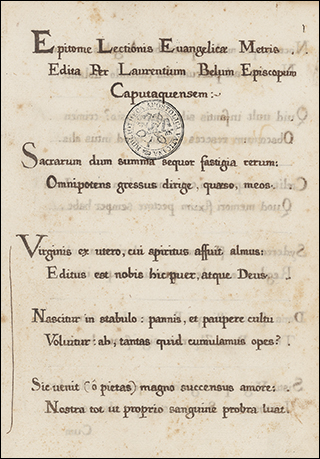 Epitome Lectionis Evangelicæ Metris
Edita Per Laurentium Belum Episcopum
Caputaquensem:~
Sacrarum dum summa sequor fastigia rerum:
Omnipotens gressus dirige, quæso, meos.
Virginis ex utero, cui spiritus affuit almus:
Editus est nobis hic puer, atque Deus.
Nascitur in stabulo: pannis, et paupere cultu
Volvitur: ah, tantas quid cumulamus opes?
Sic venit (ô pietas) magno succensus amore:
Nostra tot ut proprio sanguine probra luat.